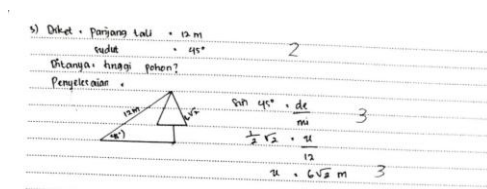 3) Diket . Panjang tali . 12 m
sudut . 45° 2
Ditanya . tinggi pohon?
Penyelesaian .
12m 45° 6√2
sin 45° . de/mi 3
1/2 √2 . x/12
x . 6√2 m 3